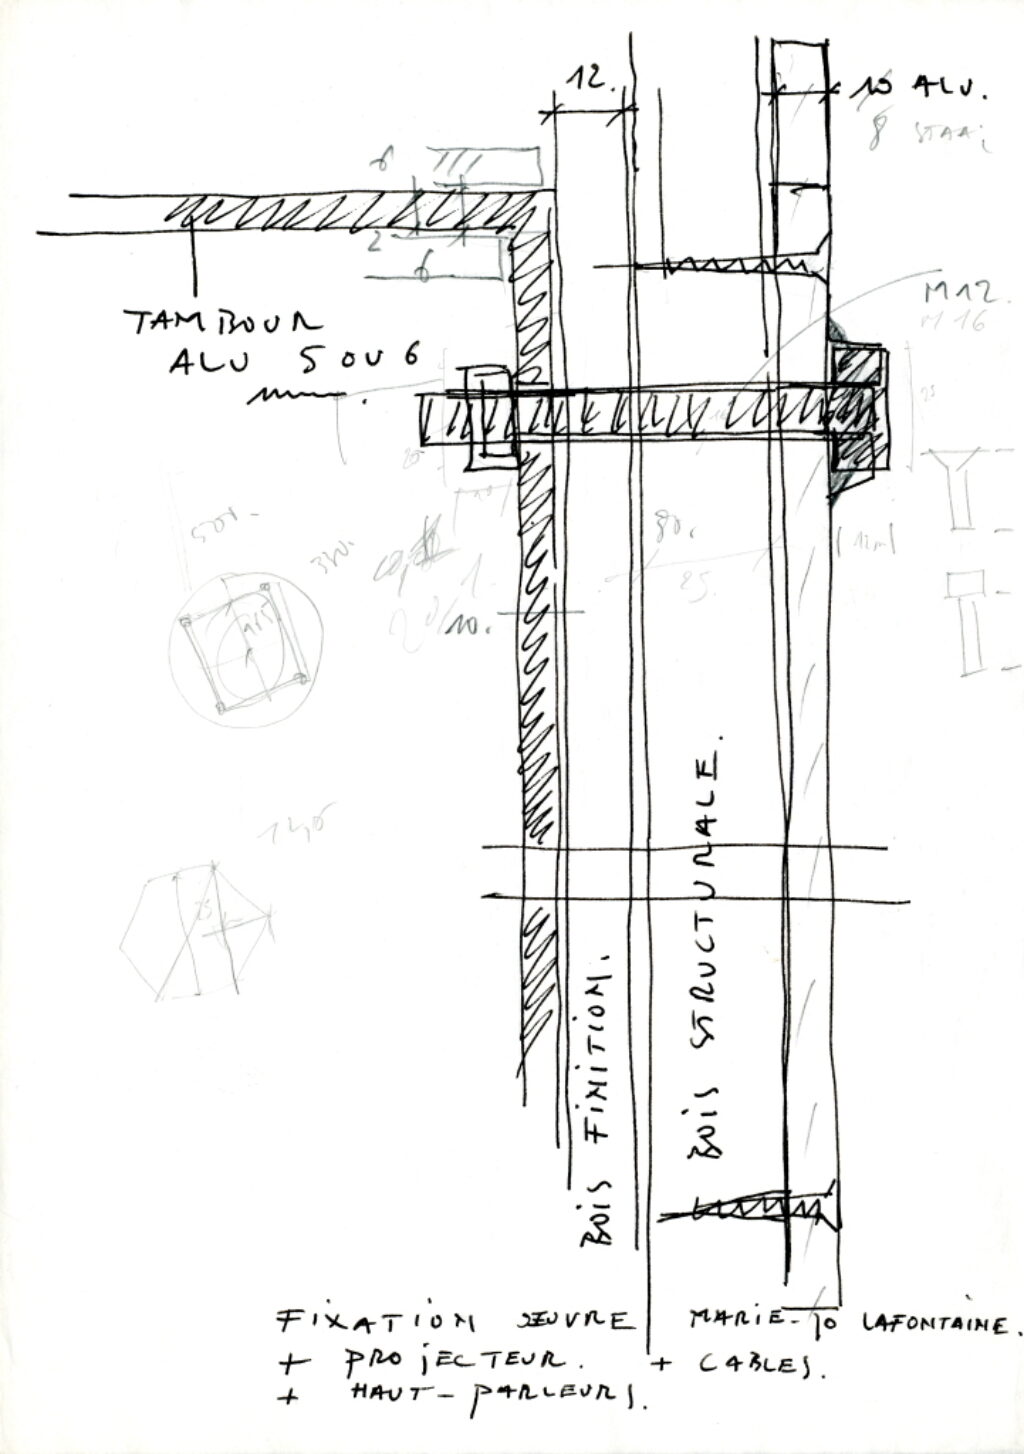 12.
10 ALU.
8 STAAL
6
2
6
M12.
M16
TAMBOUR
ALU 5 OU 6
80.
25.
10.
25
BOIS FINITION.
BOIS STRUCTURALE.
FIXATION ŒUVRE MARIE-JO LAFONTAINE.
+ PROJECTEUR. + CABLES.
+ HAUT-PARLEURS.